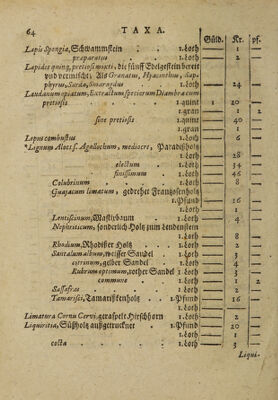 64 TAXA.
Güld. Kr. pf.
Lapis Spongia, Schwammstein . . 1. Loth — 1 —
præparatus . . 1. Loth — 2 —
Lapides quinq, pretiosi mixti, die fünff Edelgestein bereit
und vermischt, Als Granatus, Hyacinthus, Sap-
phyrus, Sarda, Smaragdus . 1. Loth — 24 —
Laudanum opiatum, Extractum specierum Diambræ cum
pretiosis . . 1. quint 1 20 —
1. gran — 1 —
sine pretiosis . . 1. quint — 40 —
1. gran — 1
Lepus combustus . . 1. Loth — 6 —
*Lignum Aloes s. Agallochum, mediocre, Paradisholtz
1. Loth — 28 —
electum . 1. Loth — 34 —
finissimum . 1. Loth — 46 —
Colubrinum . . 1. Loth — 8 —
Guajacum limatum, gedrehet Frantzosenholtz
1. Pfund — 16 —
1. Loth — 1 —
Lentiscinum, Mastixbaum . 1. Loth — 4 —
Nephriticum, sonderlich Holtz zum Lendenstein
1. Loth — 8 —
Rhodium, Rhodiser Holtz . 1. Loth — 2 —
Santalum album, weisser Sandel . 1. Loth — 3 —
citrinum, gelber Sandel . 1. Loth — 4 —
Rubrum optimum, rother Sandel 1. Loth — 3 —
commune . . 1. Loth — 1
Sassafras . . 1. Loth — 2 —
Tamarisci, Tamariskenholtz . 1. Pfund — 16 —
1. Loth — 1 —
Limatura Cornu Cervi, geraspelt Hirschhorn 1. Loth — 2 —
Liquiritia, Süßholtz außgetrucknet . 1. Pfund — 20 —
1. Loth — 1 —
cocta . . 1. Loth — 3 —
Liqui-